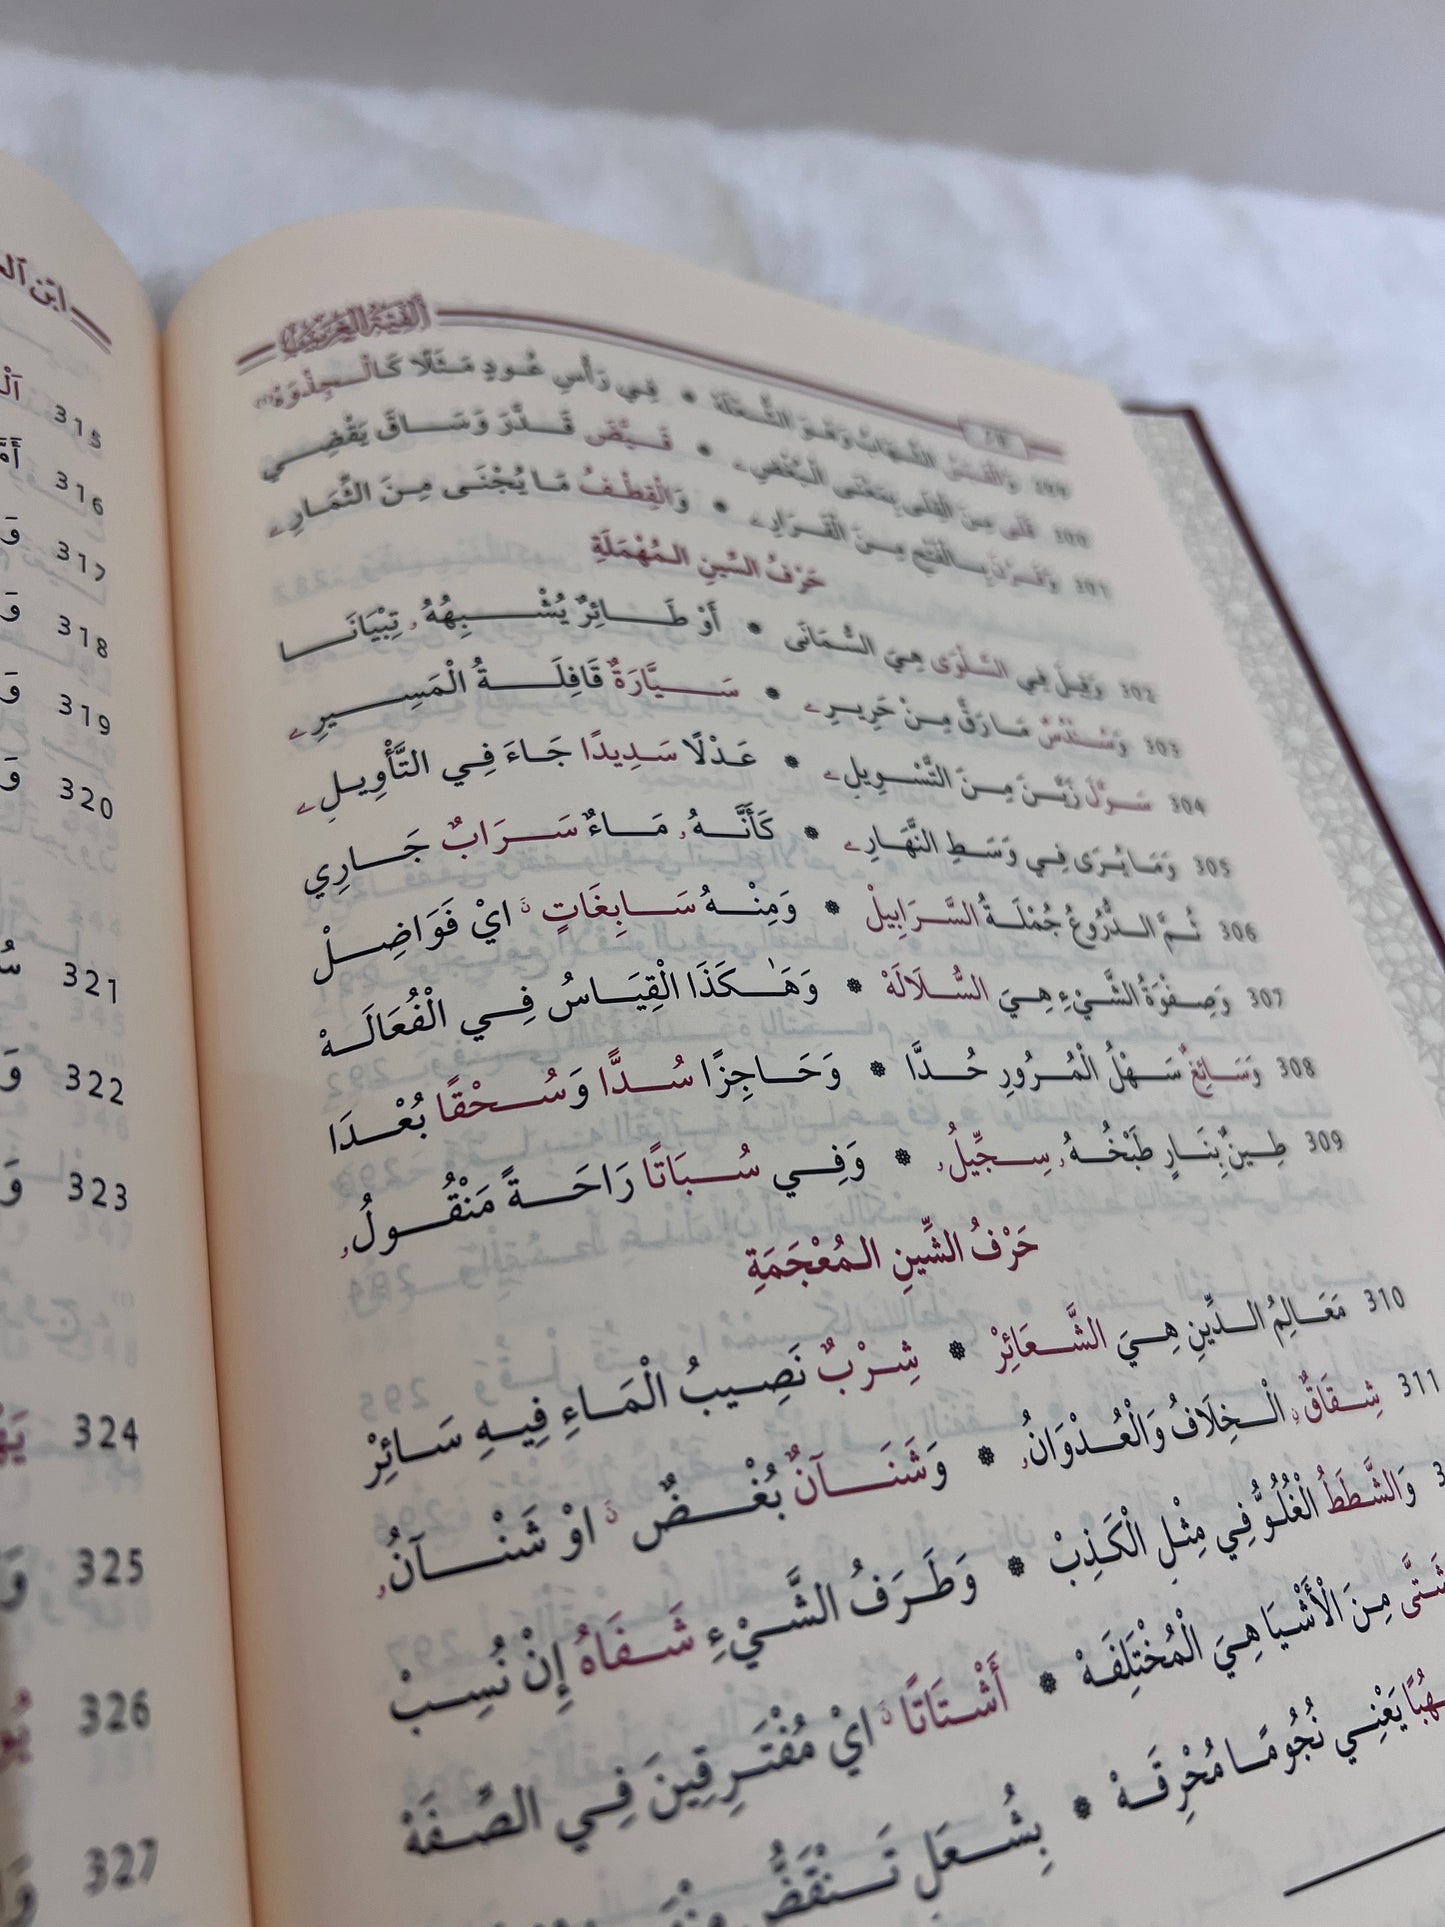 ألفية الغريب
299 وَالْقَبَسُ الشِّهَابُ وَهْوَ الشُّعْلَهْ * فِي رَأْسِ عُودٍ مَثَلًا كَالْجِذْوَهْ
300 قَلَى مِنَ الْقِلَى بِمَعْنَى الْبُغْضِ * قَيَّضَ قَدَّرَ وَسَاقَ يَقْضِي
301 وَقَرْنَ بِالْفَتْحِ مِنَ الْقَرَارِے * وَالْقِطْفُ مَا يُجْنَى مِنَ الثِّمَارِے
حَرْفُ السِّينِ الْمُهْمَلَةِ
302 وَقِيلَ فِي السَّلْوَى هِيَ السُّمَانَى * أَوْ طَائِرٌ يُشْبِهُهُۥ تِبْيَانَا
303 وَسُنْدُسٌ مَارَقَّ مِنْ حَرِيرِے * سَيَّارَةٌ قَافِلَةُ الْمَسِيرِے
304 سَوَّلَ زَيَّنَ مِنَ التَّسْوِيلِے * عَدْلًا سَدِيدًا جَاءَ فِي التَّأْوِيلِے
305 وَمَا يُرَى فِي وَسَطِ النَّهَارِے * كَأَنَّهُۥ مَاءٌ سَرَابٌ جَارِي
306 ثُمَّ الدُّرُوعُ جُمْلَةُ السَّرَابِيلْ * وَمِنْهُ سَابِغَاتٍ نَ ايْ فَوَاضِلْ
307 وَصِفْوَةُ الشَّيْءِ هِيَ السُّلَالَهْ * وَهَٰكَذَا الْقِيَاسُ فِي الْفُعَالَهْ
308 وَسَائِغٌ سَهْلُ الْمُرُورِ حُدَّا * وَحَاجِزًا سُدًّا وَسُحْقًا بُعْدَا
309 طِينٌ بِنَارٍ طَبْخُهُۥ سِجِّيلُۥ * وَفِي سُبَاتًا رَاحَةً مَنْقُولُۥ
حَرْفُ الشِّينِ الْمُعْجَمَةِ
310 مَعَالِمُ الدِّينِ هِيَ الشَّعَائِرْ * شِرْبٌ نَصِيبُ الْمَاءِ فِيهِ سَائِرْ
311 شِقَاقٌ الْخِلَافُ وَالْعُدْوَانُۥ * وَشَنَآنٌ بُغْضٌ نَ اوْ شَنْآنُۥ
3 وَالشَّطَطُ الْغُلُوُّ فِي مِثْلِ الْكَذِبْ * وَطَرَفُ الشَّيْءِ شَفَاهُ إِنْ نُسِبْ
شَتَّى مِنَ الْأَشْيَا هِيَ الْمُخْتَلِفَهْ * أَشْتَاتًا نَ ايْ مُفْتَرِقِينَ فِي الصِّفَهْ
هُبًا يَعْنِي نُجُومًا مُحْرِقَهْ * بِشُعَلٍ تَنْقَضُّ
ابن
315
316
317
318
319
320
321
322
323
324
325
326
327